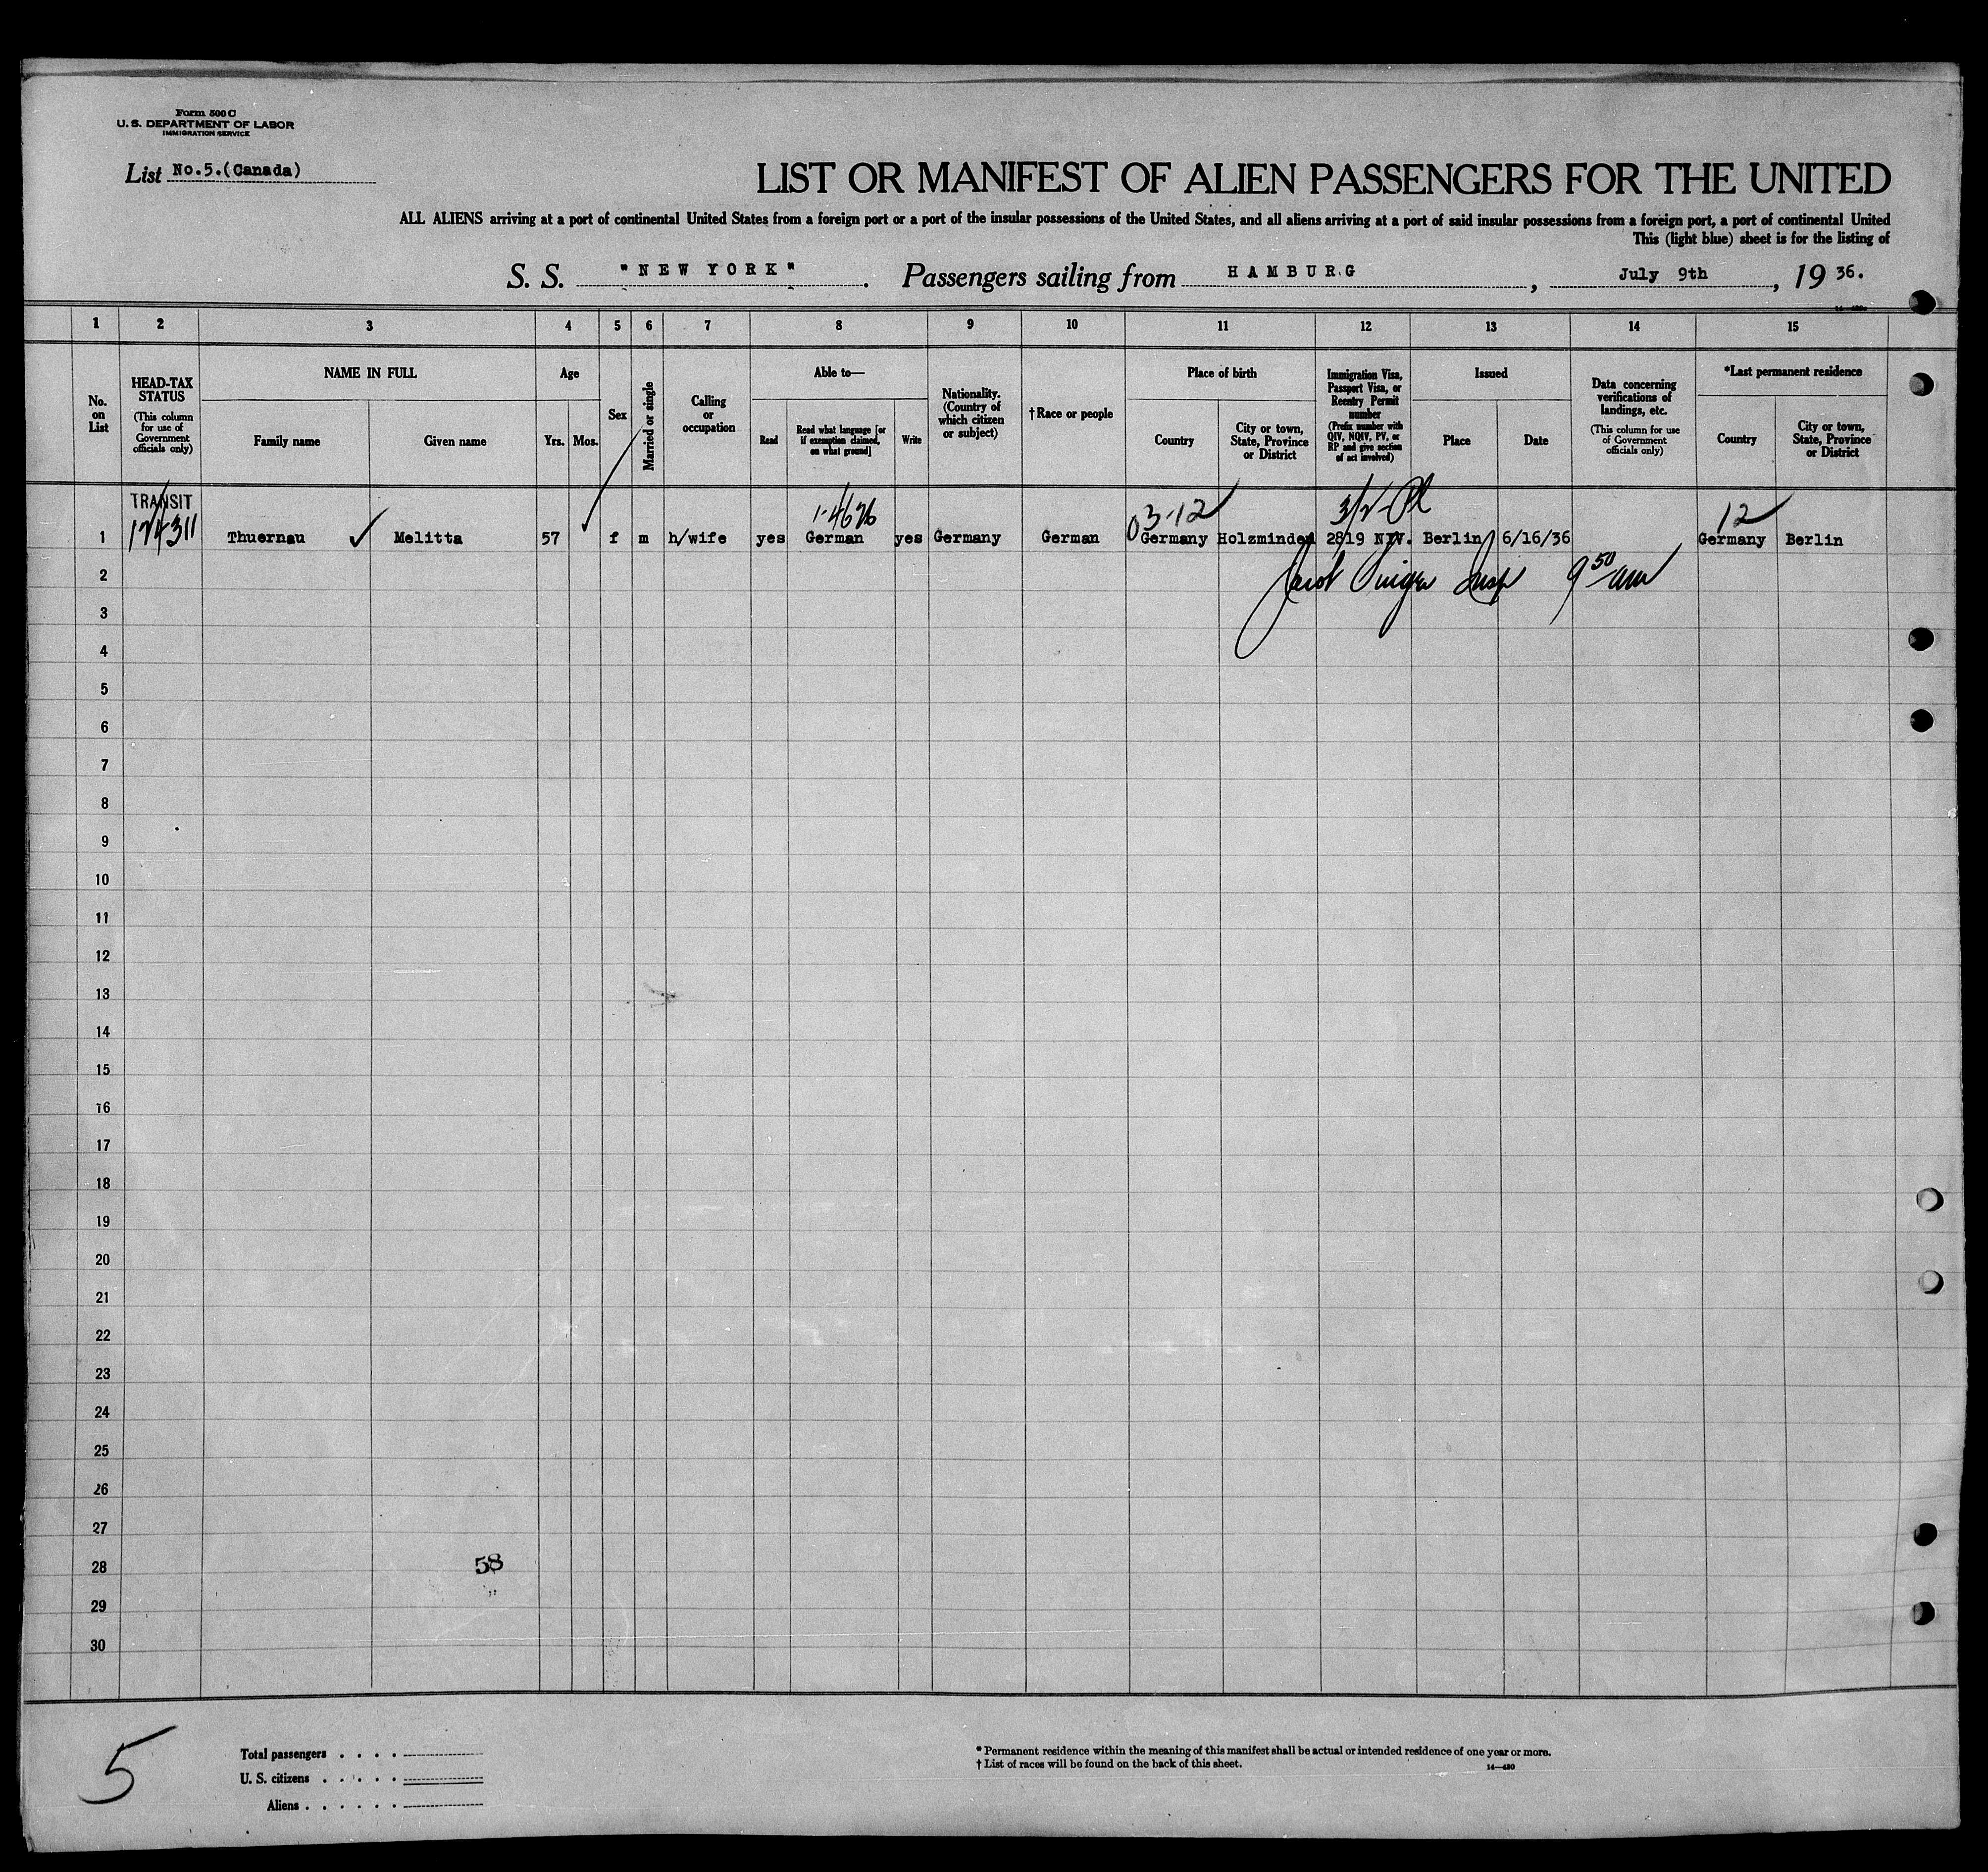 Form 500 C
U. S. DEPARTMENT OF LABOR
IMMIGRATION SERVICE
List No.5.(Canada)
LIST OR MANIFEST OF ALIEN PASSENGERS FOR THE UNITED
ALL ALIENS arriving at a port of continental United States from a foreign port or a port of the insular possessions of the United States, and all aliens arriving at a port of said insular possessions from a foreign port, a port of continental United
This (light blue) sheet is for the listing of
S. S. "NEW YORK". Passengers sailing from HAMBURG, July 9th, 19 36.
1 2 3 4 5 6 7 8 9 10 11 12 13 14 15
No. on List
HEAD-TAX STATUS
(This column for use of Government officials only)
NAME IN FULL
Family name Given name
Age
Yrs. Mos.
Sex
Married or single
Calling or occupation
Able to—
Read
Read what language [or if exemption claimed, on what ground]
Write
Nationality. (Country of which citizen or subject)
† Race or people
Place of birth
Country
City or town, State, Province or District
Immigration Visa, Passport Visa, or Reentry Permit number
(Prefix number with QIV, NQIV, PV, or RP and give section of act involved)
Issued
Place Date
Data concerning verifications of landings, etc.
(This column for use of Government officials only)
*Last permanent residence
Country
City or town, State, Province or District
TRANSIT
3-12 12
1 Thuernau ✓ Melitta 57 f m h/wife yes German yes Germany German Germany Holzminden 2819 NIV. Berlin 6/16/36 Germany Berlin
2 Insp 9 50 am
3
4
5
6
7
8
9
10
11
12
13
14
15
16
17
18
19
20
21
22
23
24
25
26
27
28 58
29
30
5
Total passengers . . . .
U. S. citizens . . . . .
Aliens . . . . . .
* Permanent residence within the meaning of this manifest shall be actual or intended residence of one year or more.
† List of races will be found on the back of this sheet.
14—430